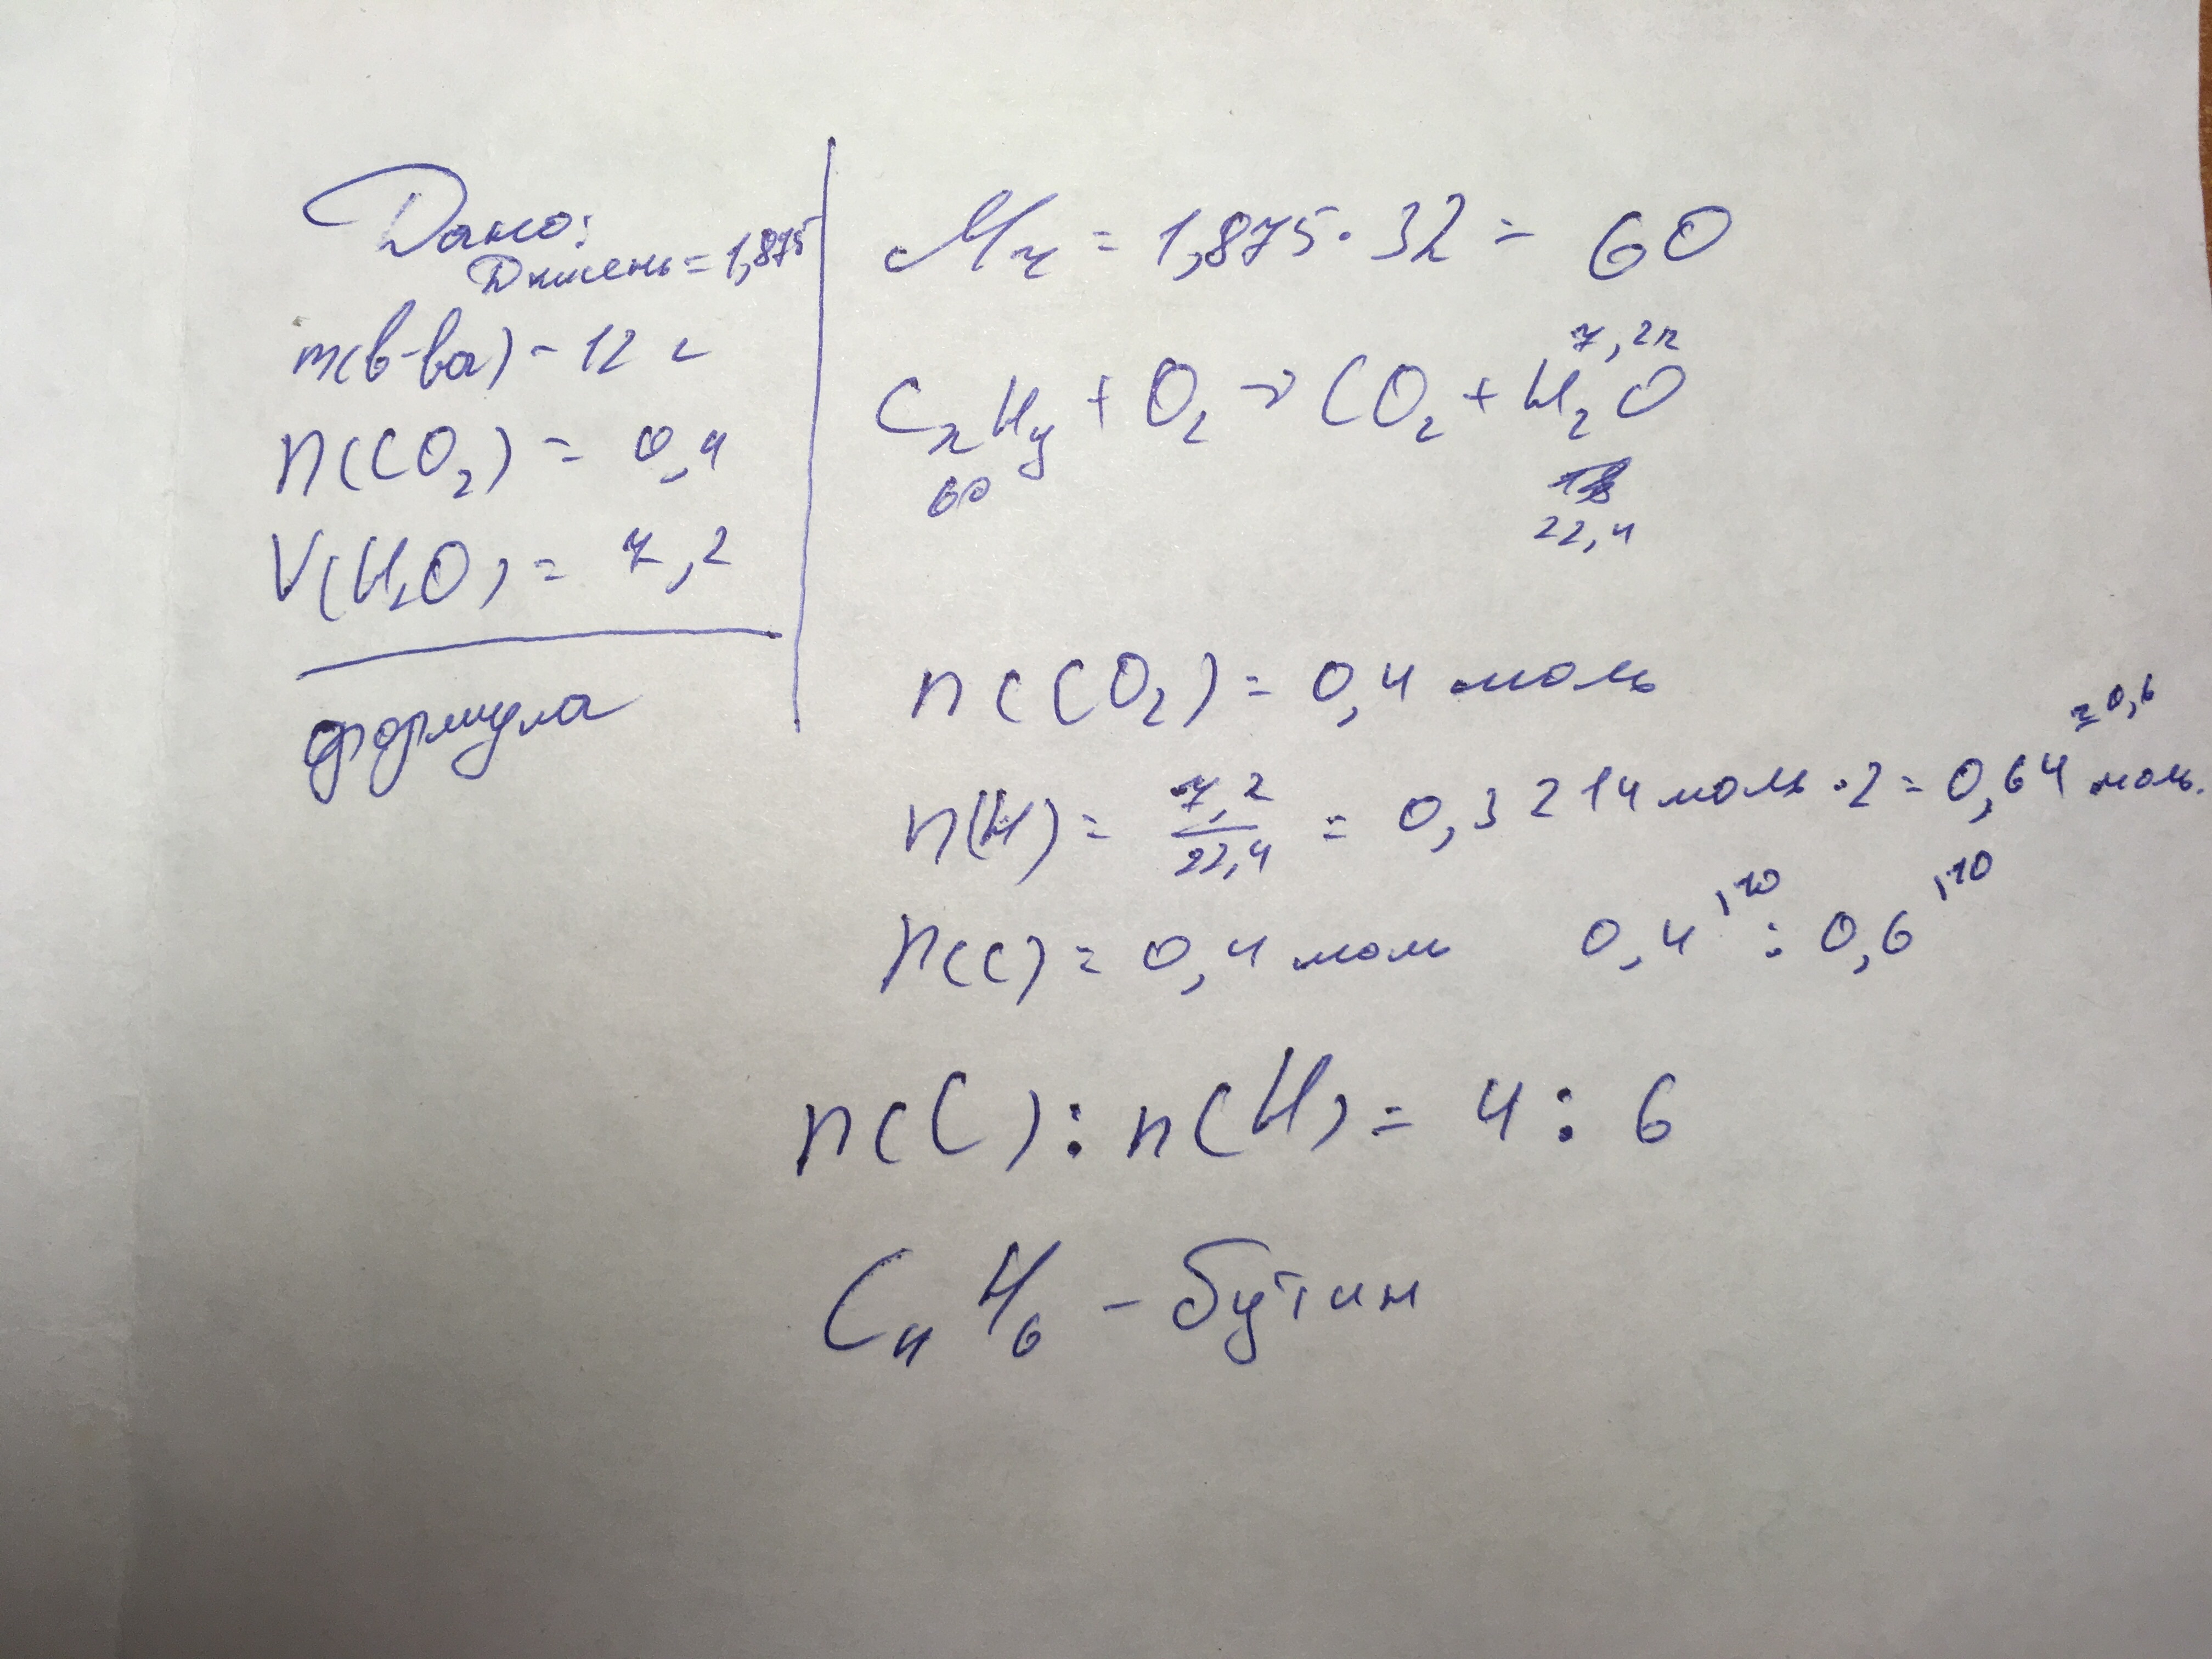 Дано:
Dкисень = 1,875
m(в-ва) - 12 г
n(CO₂) = 0,4
V(H₂O) = 7,2
формула
Mr = 1,875 · 32 = 60
7,2л
CxHy + O₂ → CO₂ + H₂O
60
22,4
n(CO₂) = 0,4 моль
n(H) = 7,2/22,4 = 0,3214 моль · 2 = 0,64 моль.
≈ 0,6
n(C) = 0,4 моль 0,4 |·10 : 0,6 |·10
n(C) : n(H) = 4 : 6
C₄H₆ - бутин